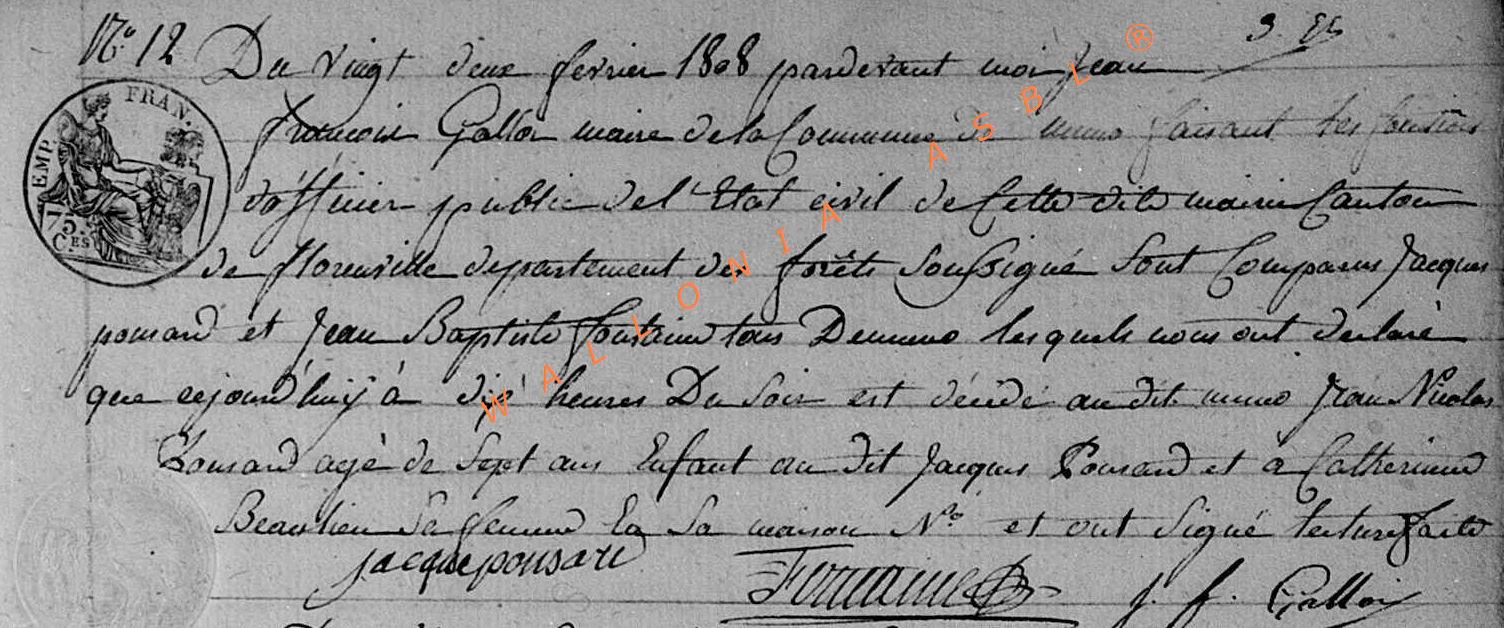 N.° 12 Du vingt deux fevrier 1808 pardevant moi Jean
françois Galloi maire de la Commune de muno faisant les fonctions
d'officier public de l'Etat civil de Cette dite mairie Canton
de florenville departement des forêts Soussigné Sont Comparus Jacques
ponsard et Jean Baptiste fontaine tous De muno lesquels nous ont declaré
que cejourd'huÿ à dix heures Du Soir est décédé au dit muno Jean Nicolas
Ponsard agé de Sept ans Enfant au dit Jacques Ponsard et à Catherinne
Beaulieu Sa femme En Sa maison N.° et ont Signé lecture faite
jacque ponsard Fontaine J. f. Galloi
EMP. FRAN.
75.
C.ES
WALLONIA ASBL ®